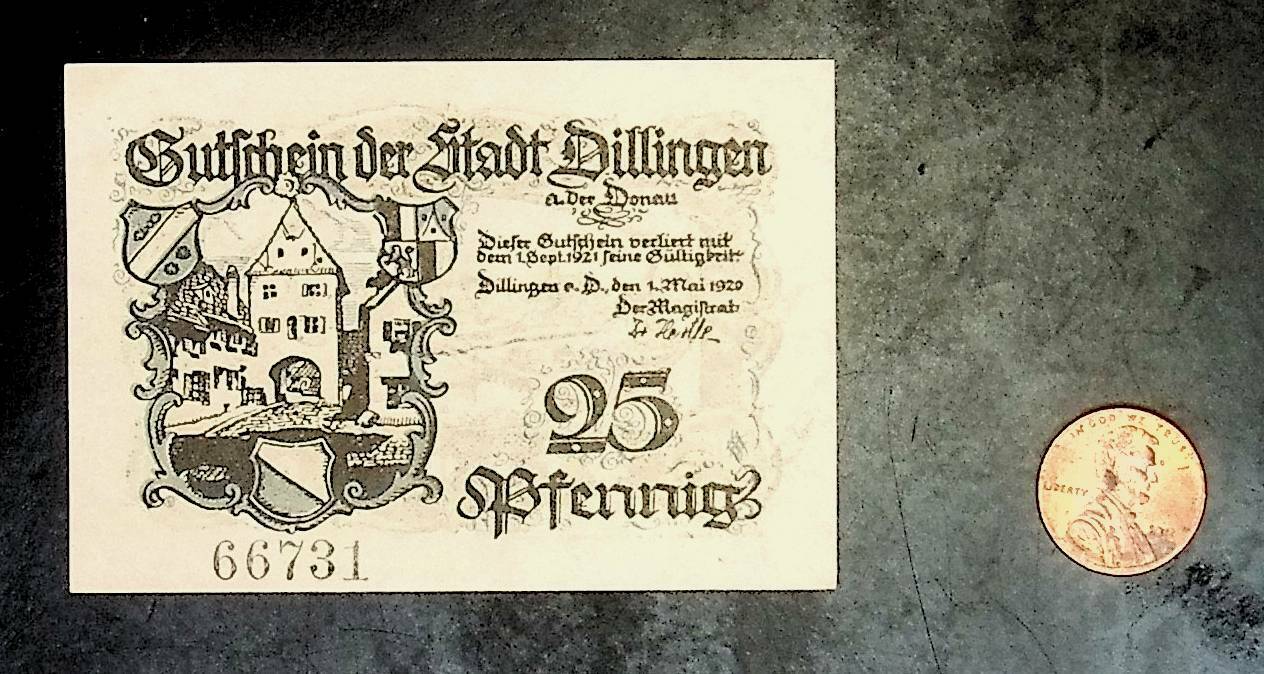 Gutschein der Stadt Dillingen
a. der Donau
Dieser Gutschein verliert mit
dem 1. Sept. 1921 seine Gültigkeit
Dillingen a. D., den 1. Mai 1920
Der Magistrat
25
Pfennig
66731
IN GOD WE TRUST
LIBERTY